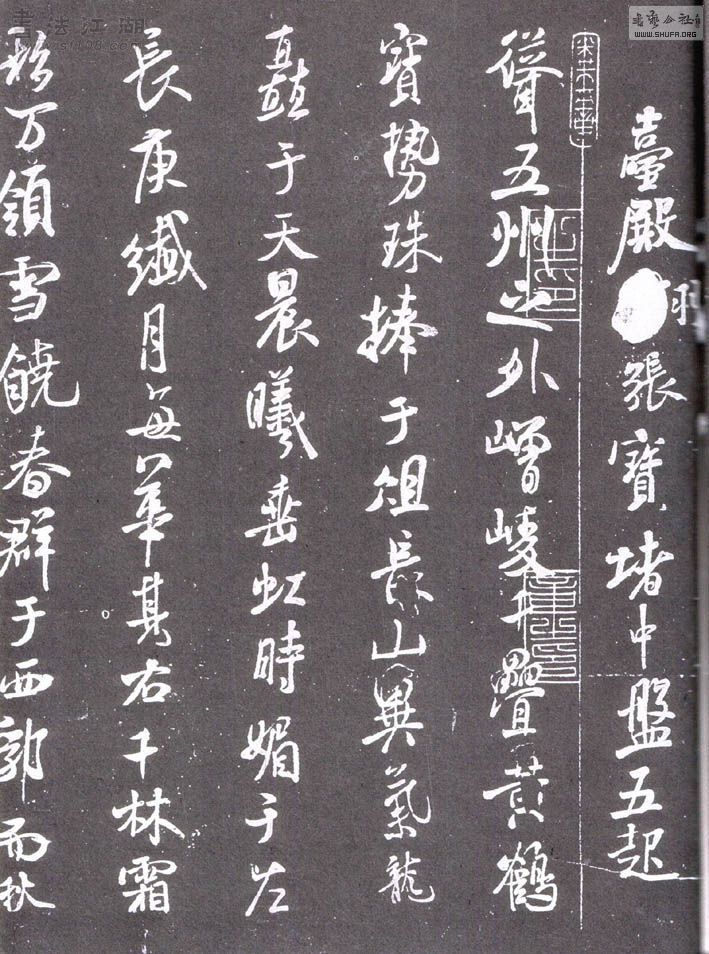 臺殿羽張寶堵中盤五起
聳五州之外嶒崚千疊黄鶴
寶勢珠捧于俎長山異氣龍
矗于天晨曦垂虹時媚于左
長庚纎月每華其右千林霜
万領雪饒春群于西郭而秋
書法江湖
書藝公社
WWW.SHUFA.ORG